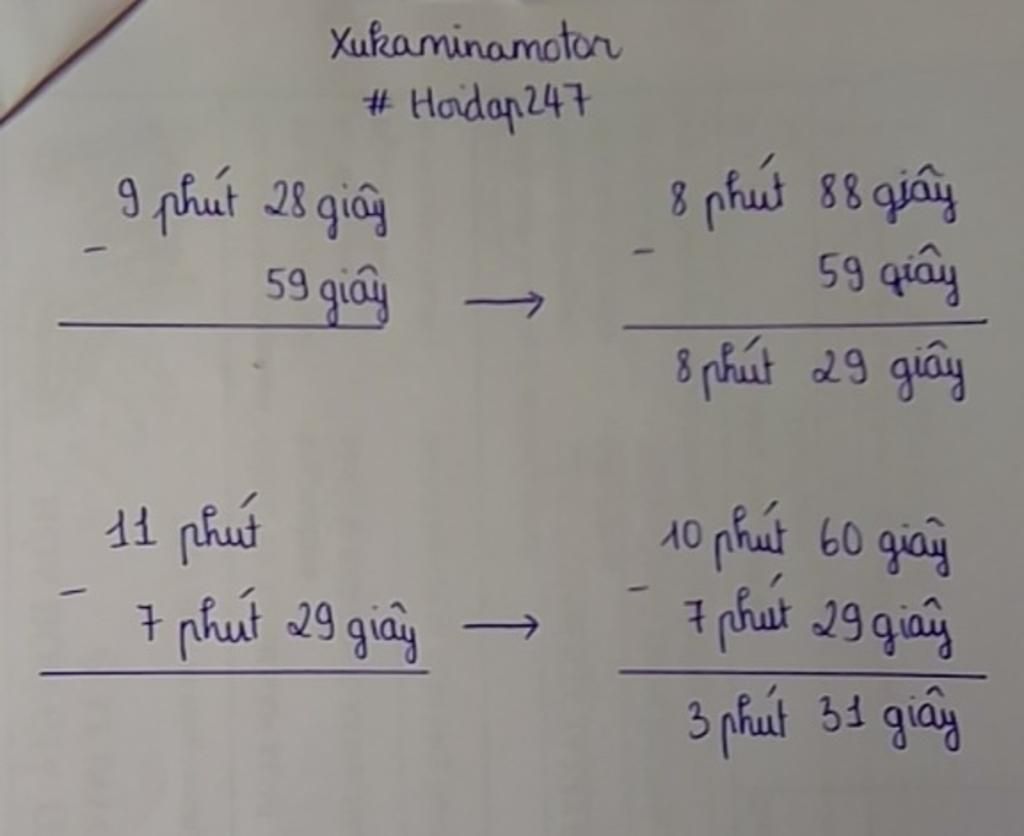 Xukaminamoton
# Hoidap247
9 phút 28 giây
-
59 giây
→
8 phút 88 giây
-
59 giây
8 phút 29 giây
11 phút
-
7 phút 29 giây
→
10 phút 60 giây
-
7 phút 29 giây
3 phút 31 giây